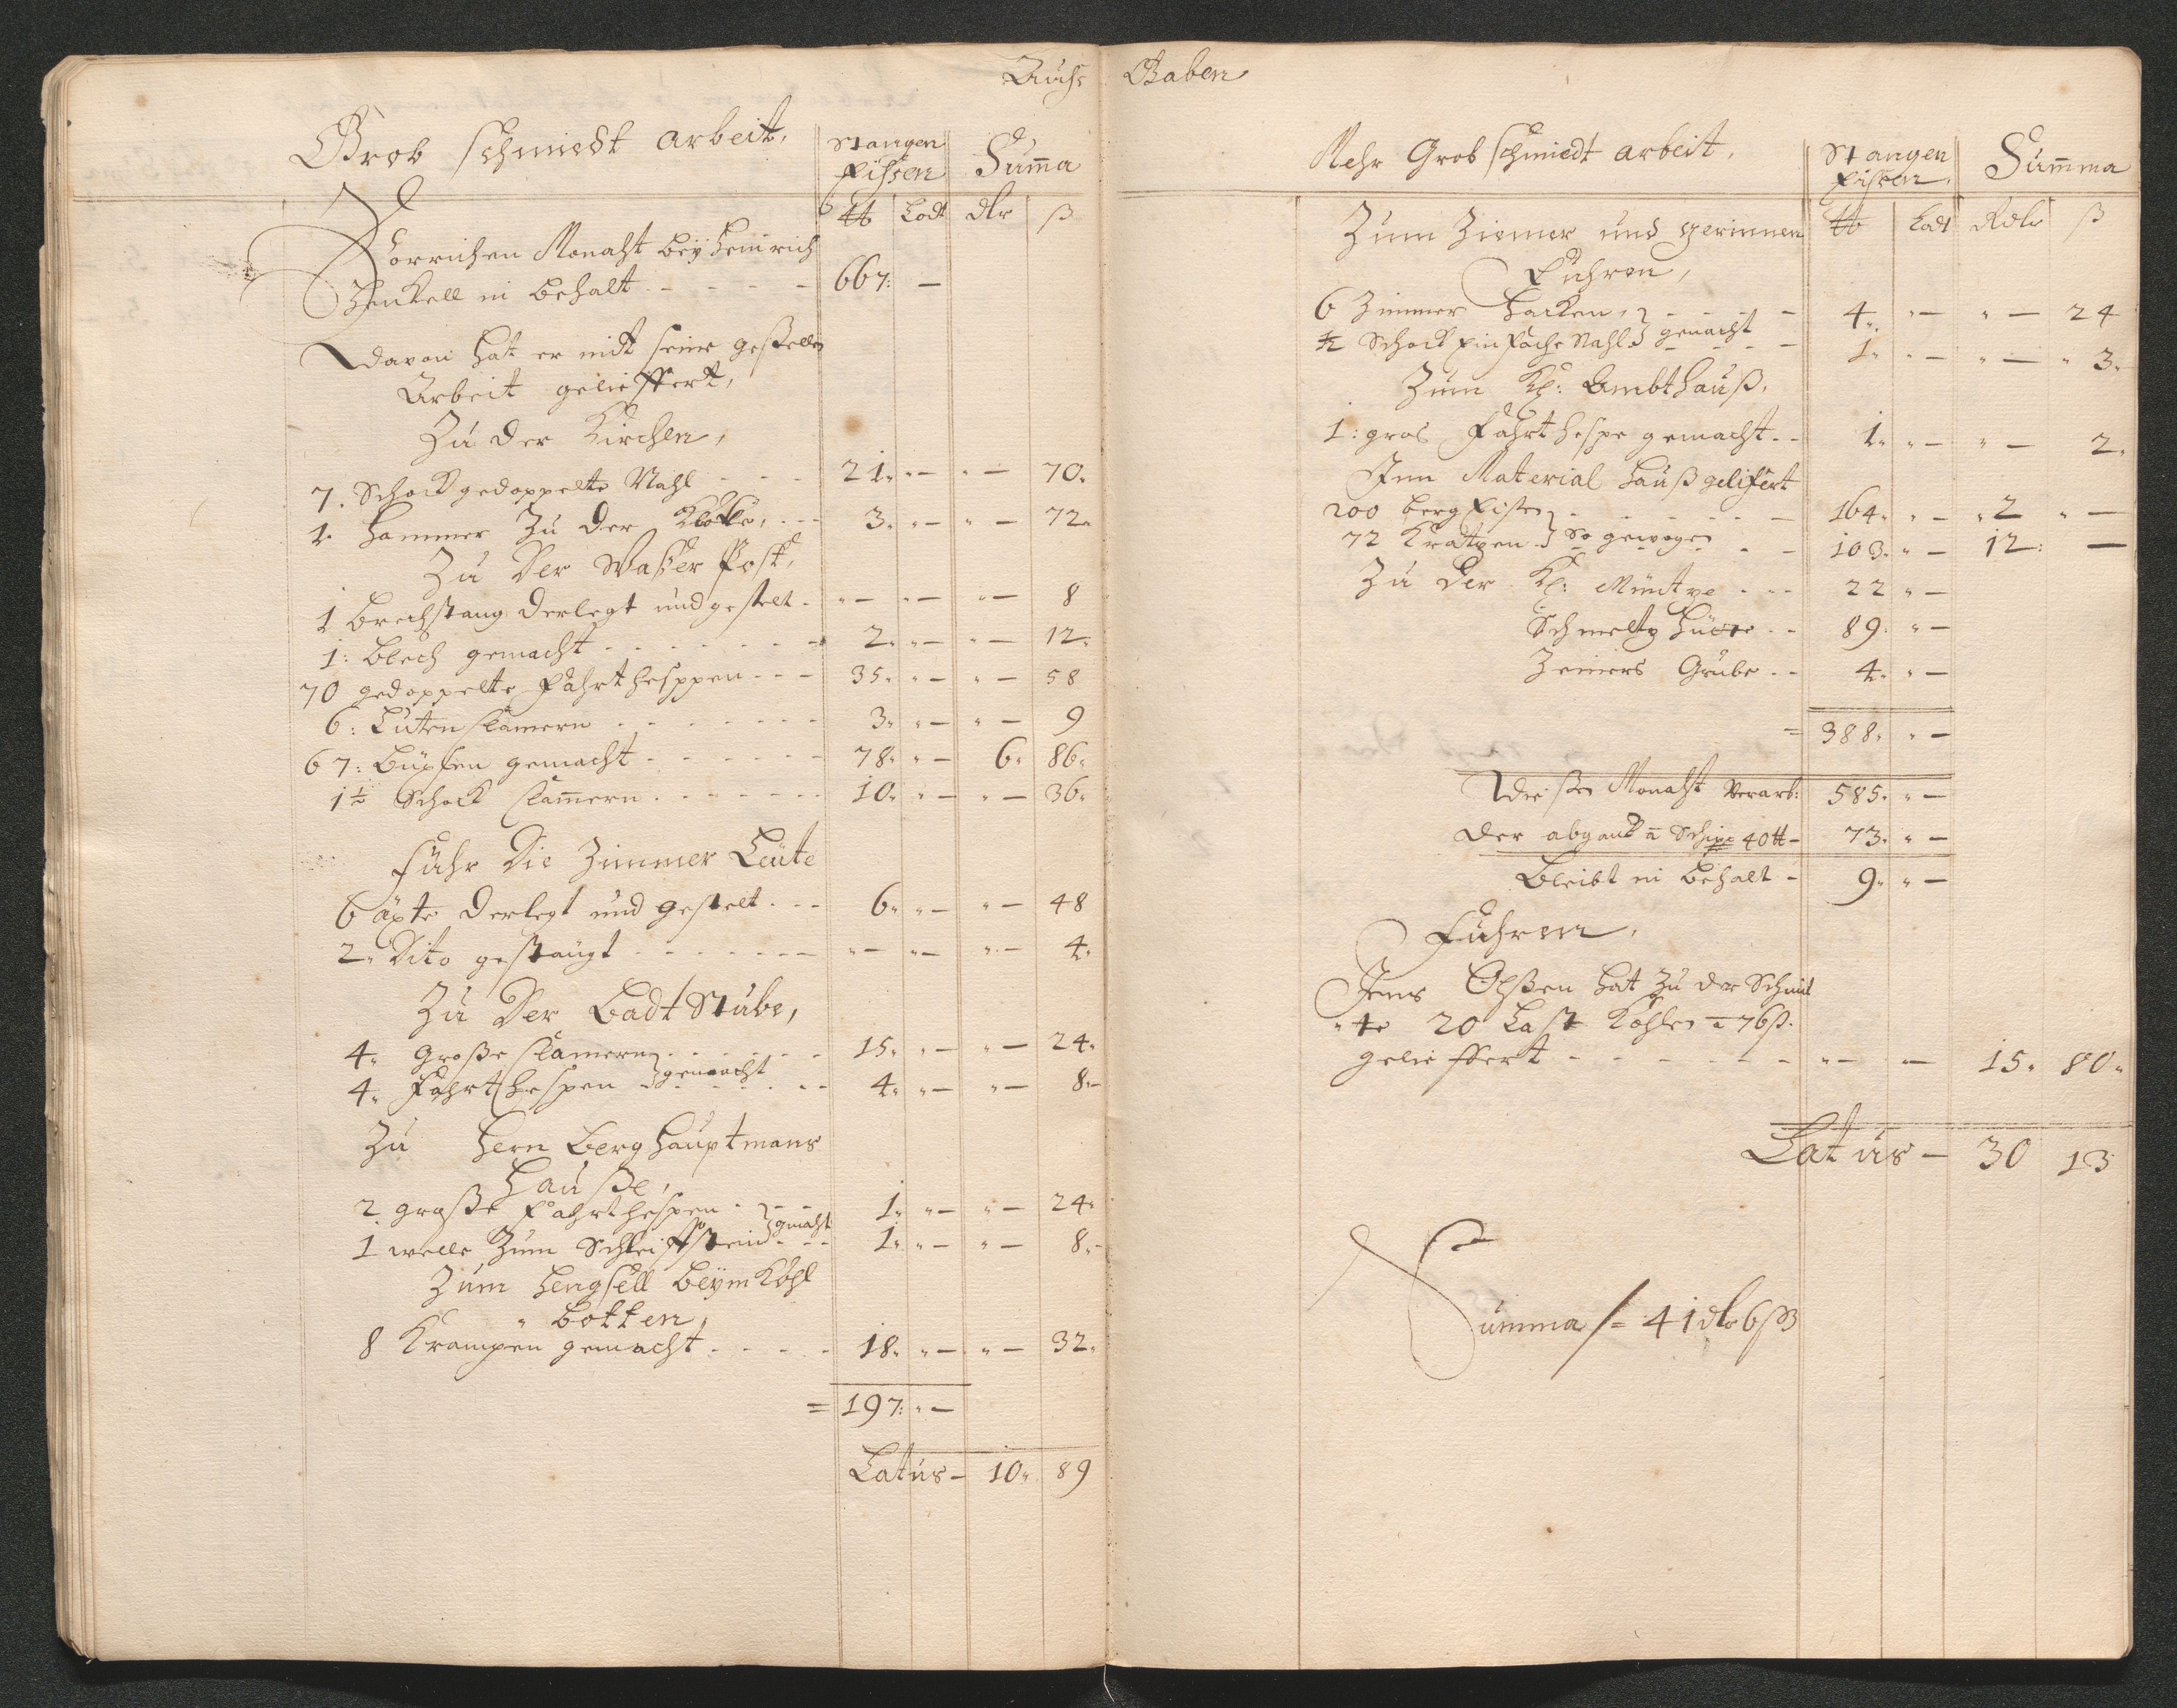 Auhs Gaben
Grob schmiedt arbeit,
Stangen Eißen Summa
℔ Lodt dlr ß
Vorrichen Monaht beÿ Heinrich
Henckell in behalt - - - - - 667: —
davon hat er mit seine gesellen
Arbeit gelieffert,
Zu der Kirchen,
7. Schock gedoppelte Nahl - - - 21. „— „— 70.
1. Hammer Zu der Klocke, - - - 3. „— „— 72.
Zu Der Waßer Post,
1 Brechstang Verlegt und gestelt . „— „— „— 8
1: Blech gemacht - - - - - - - 2. „— „— 12.
70 gedoppelte Fahrt hesppen - - - 35. „— „— 58
6: Lutten Clamern - - - - - - - 3. „— „— 9
67: Büxsen gemacht - - - - - - 78. „— 6. 86.
1½ Schock Clamern - - - - - - - 10. „— „— 36.
Fuhr Die Zimmer Leute
6 äxte Verlegt und gestelt - - - 6. „— „— 48
2. Dito gestäugt - - - - - - - „— „— „— 4.
Zu Der Badt Stube,
4. Große Clamern - - - - - - 15. „— „— 24.
4. Fahrt hespen gemacht - - - 4. „— „— 8.—
Zu Hern Berg Hauptmans
Hauße,
2 große Fahrt hespen - - - 1. „— „— 24.
1 welle Zum Schleiffstein gemacht - - - 1. „— „— 8.—
Zum Hengsell beÿm Kohl
„ botten,
8 Krampen gemacht - - - - - 18. „— „— 32.
= 197: „—
Latus — 10. 89
Mehr Grob schmiedt arbeit,
Stangen Eißen, Summa
Zum Ziemer und Gerinnen ℔ Lodt Rdlr ß
Fuhren,
6 Zimmer Hacken, - - - - - 4. „— „— 24
½ Schock einfache Nahl gemacht - - - 1. „— „— „3.
Zum Kl: Ambthauß,
1: gros Fahrt hespe gemacht - - 1. „— „— 2.
Inn Material Hauß gelifert
200 berg Eisen - - - - - - 164. „— „2 „—
72 Kratzen so gewogen - - 103. „— 12: —
Zu der Kl: Müntze - - - 22 „—
Schmeltz Hütte - - 89: „—
Zeiners Grube - - 4. „—
= 388. „—
Dießen Monaht Verarb: 585. „—
Der abganck a Schipp 40 ℔ - 73. „—
Bleibt in behalt - 9. „—
Fuhren,
Jens Olßen hat Zu der Schmit
„te 20 Last Kohlen a 76 ß.
gelieffert - - - - - - „— — 15. 80.
Latus — 30 13
Summa /= 41 dlr 6 ß